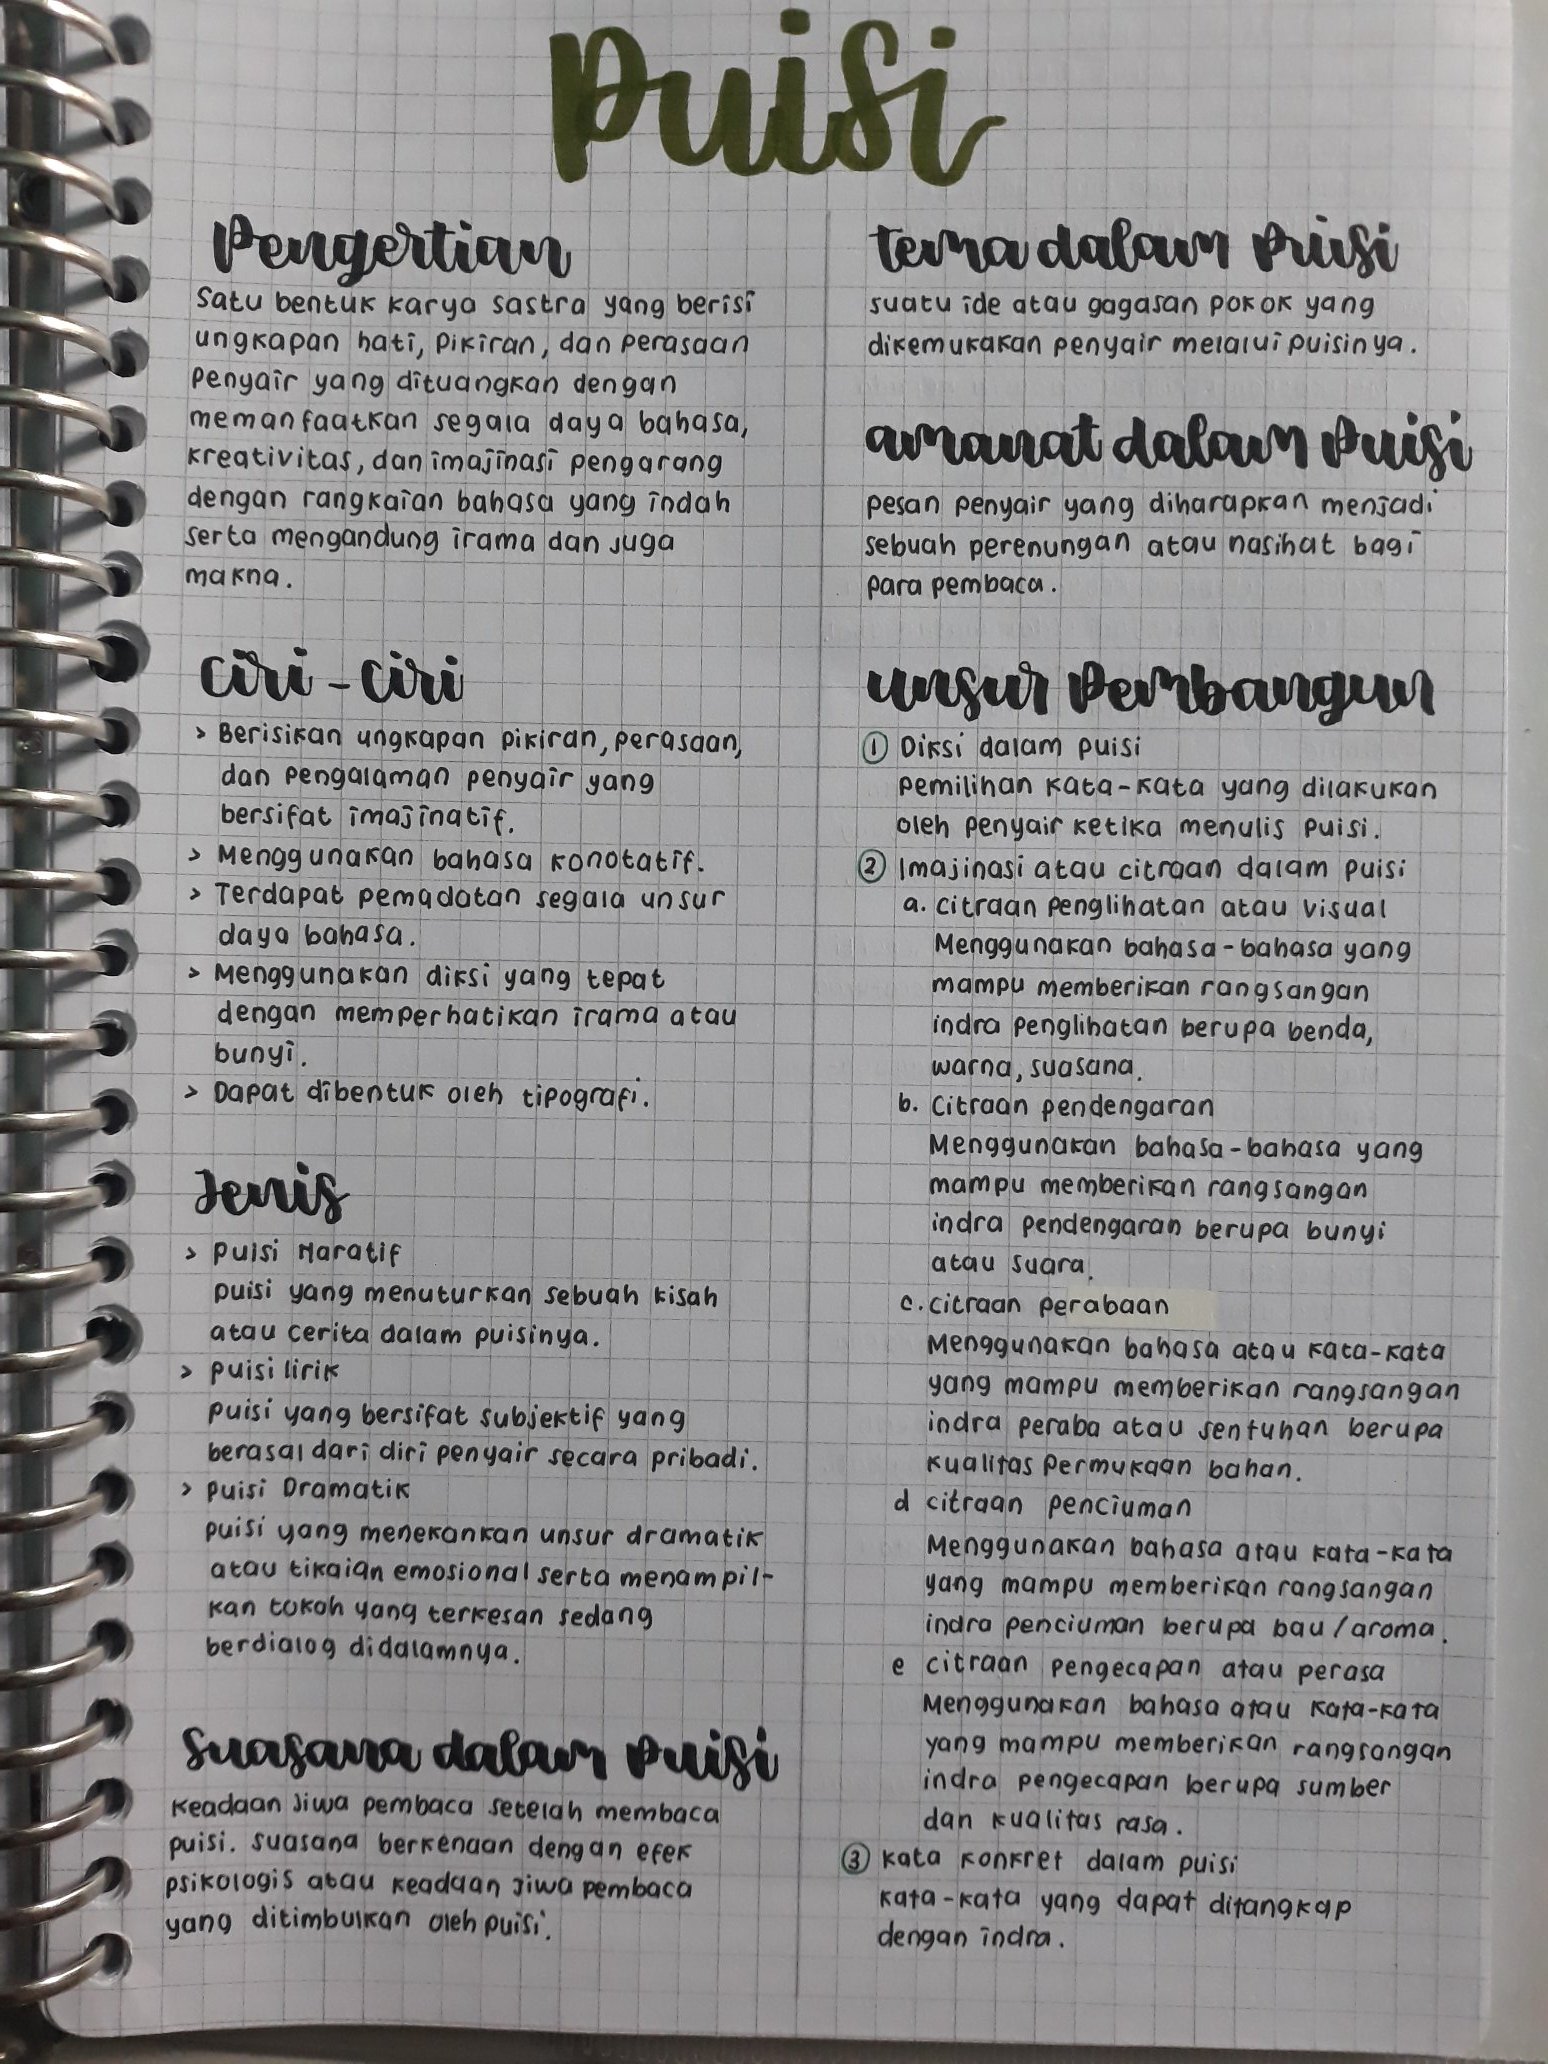 Puisi
Pengertian
Satu bentuk karya sastra yang berisi
ungkapan hati, pikiran, dan perasaan
penyair yang dituangkan dengan
memanfaatkan segala daya bahasa,
kreativitas, dan imajinasi pengarang
dengan rangkaian bahasa yang indah
serta mengandung irama dan juga
makna.
Ciri - Ciri
> Berisikan ungkapan pikiran, perasaan,
dan pengalaman penyair yang
bersifat imajinatif.
> Menggunakan bahasa konotatif.
> Terdapat pemadatan segala unsur
daya bahasa.
> Menggunakan diksi yang tepat
dengan memperhatikan irama atau
bunyi.
> Dapat dibentuk oleh tipografi.
Jenis
> Puisi Naratif
puisi yang menuturkan sebuah kisah
atau cerita dalam puisinya.
> puisi lirik
puisi yang bersifat subjektif yang
berasal dari diri penyair secara pribadi.
> puisi Dramatik
puisi yang menekankan unsur dramatik
atau tikaian emosional serta menampil-
kan tokoh yang terkesan sedang
berdialog didalamnya.
Suasana dalam Puisi
Keadaan jiwa pembaca setelah membaca
puisi. Suasana berkenaan dengan efek
psikologis atau keadaan jiwa pembaca
yang ditimbulkan oleh puisi.
tema dalam Puisi
suatu ide atau gagasan pokok yang
dikemukakan penyair melalui puisinya.
amanat dalam Puisi
pesan penyair yang diharapkan menjadi
sebuah perenungan atau nasihat bagi
para pembaca.
unsur Pembangun
① Diksi dalam puisi
pemilihan kata-kata yang dilakukan
oleh penyair ketika menulis puisi.
② Imajinasi atau citraan dalam puisi
a. citraan penglihatan atau visual
Menggunakan bahasa-bahasa yang
mampu memberikan rangsangan
indra penglihatan berupa benda,
warna, suasana.
b. Citraan pendengaran
Menggunakan bahasa-bahasa yang
mampu memberikan rangsangan
indra pendengaran berupa bunyi
atau suara.
c. citraan perabaan
Menggunakan bahasa atau kata-kata
yang mampu memberikan rangsangan
indra peraba atau sentuhan berupa
kualitas permukaan bahan.
d citraan penciuman
Menggunakan bahasa atau kata-kata
yang mampu memberikan rangsangan
indra penciuman berupa bau/aroma.
e citraan pengecapan atau perasa
Menggunakan bahasa atau kata-kata
yang mampu memberikan rangsangan
indra pengecapan berupa sumber
dan kualitas rasa.
③ Kata konkret dalam puisi
kata-kata yang dapat ditangkap
dengan indra.